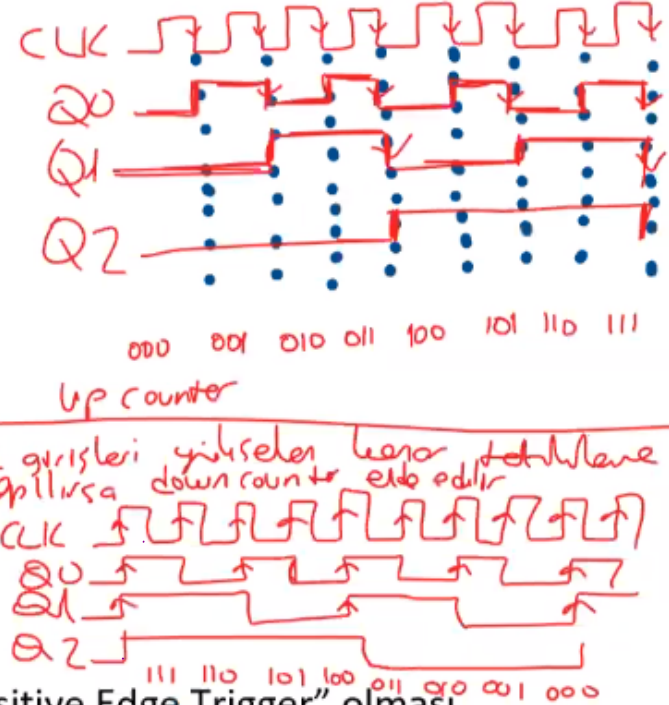 CLK
Q0
Q1
Q2
000 001 010 011 100 101 110 111
up counter
girişleri yükselen kenar tetikleme
yapılırsa down counter elde edilir
CLK
Q0
Q1
Q2
111 110 101 100 011 010 001 000
sitive Edge Trigger” olması